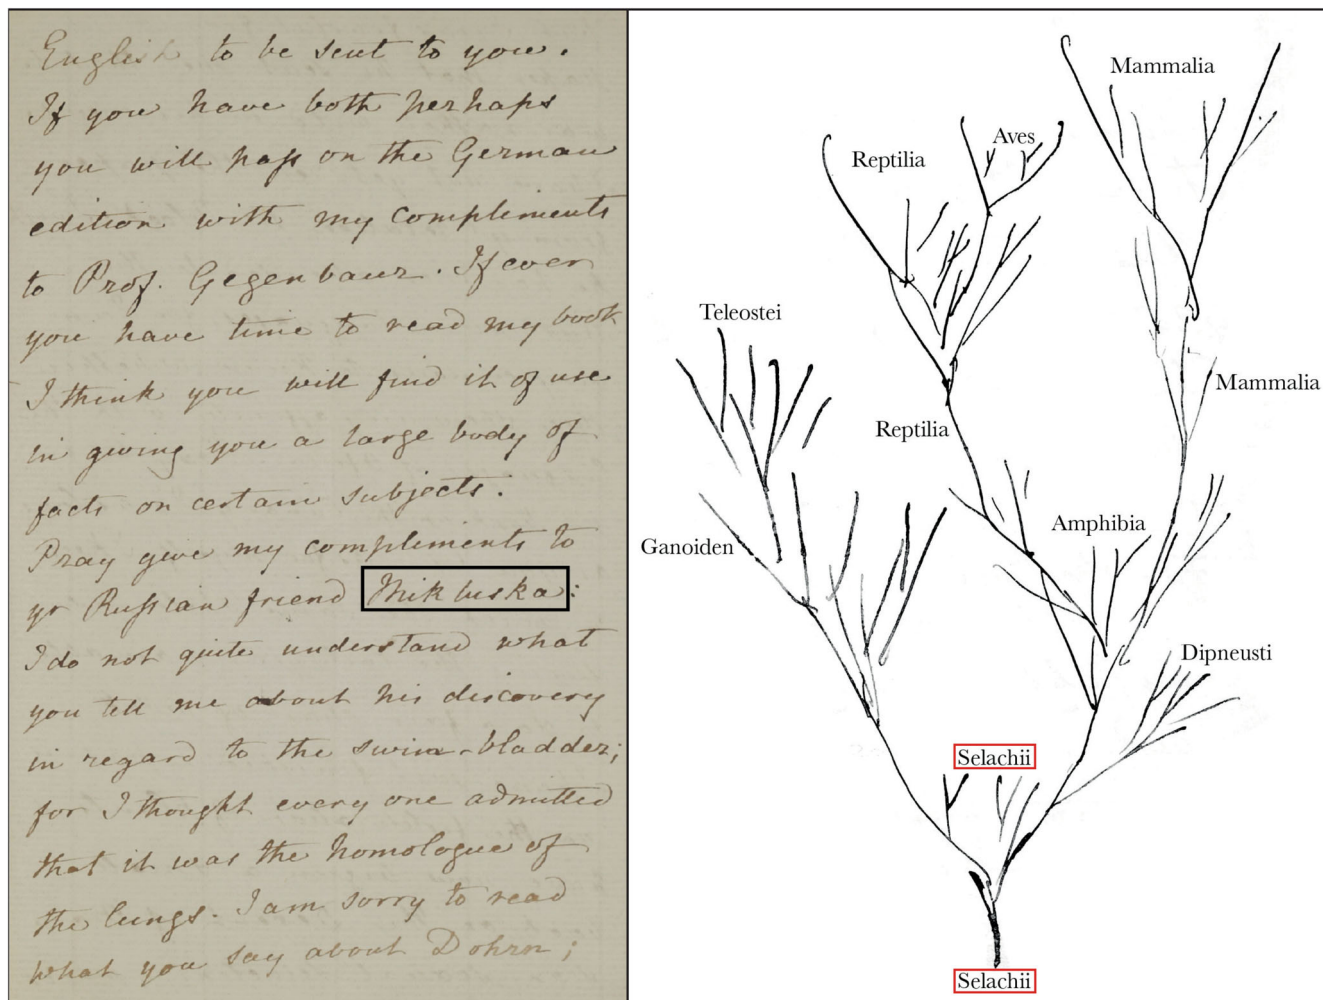 English to be sent to you.
If you have both perhaps
you will pass on the German
edition with my compliments
to Prof. Gegenbaur. If ever
you have time to read my book
I think you will find it of use
in giving you a large body of
facts on certain subjects.
Pray give my compliments to
yr Russian friend Mikluska:
I do not quite understand what
you tell me about his discovery
in regard to the swim-bladder;
for I thought every one admitted
that it was the homologue of
the lungs. I am sorry to read
what you say about Dohrn;
Mammalia
Aves
Reptilia
Teleostei
Mammalia
Reptilia
Amphibia
Ganoiden
Dipneusti
Selachii
Selachii